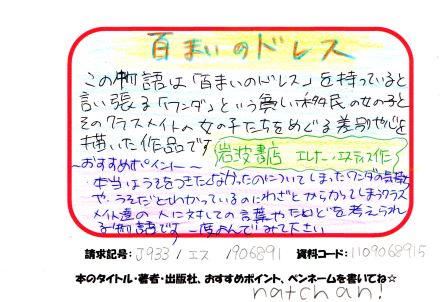 百まいのドレス
この物語は「百まいのドレス」を持っていると
言い張る「ワンダ」という貧しい移民の女の子と
そのクラスメイトの女の子たちをめぐる差別や心を
描いた作品です 岩波書店 エレナー・エスティス作
~おすすめポイント~
本当はうそをつきたくなかったのについてしまったワンダの言葉
や、うそだと分かっているのにわざとからかってしまうクラス
メイト達の人に対しての言葉やたいどを考えられ
る物語です 一度よんでみて下さい
請求記号: J933 / エス / 1906891 資料コード: 1109068915
本のタイトル・著者・出版社、おすすめポイント、ペンネームを書いてね☆
natchan!